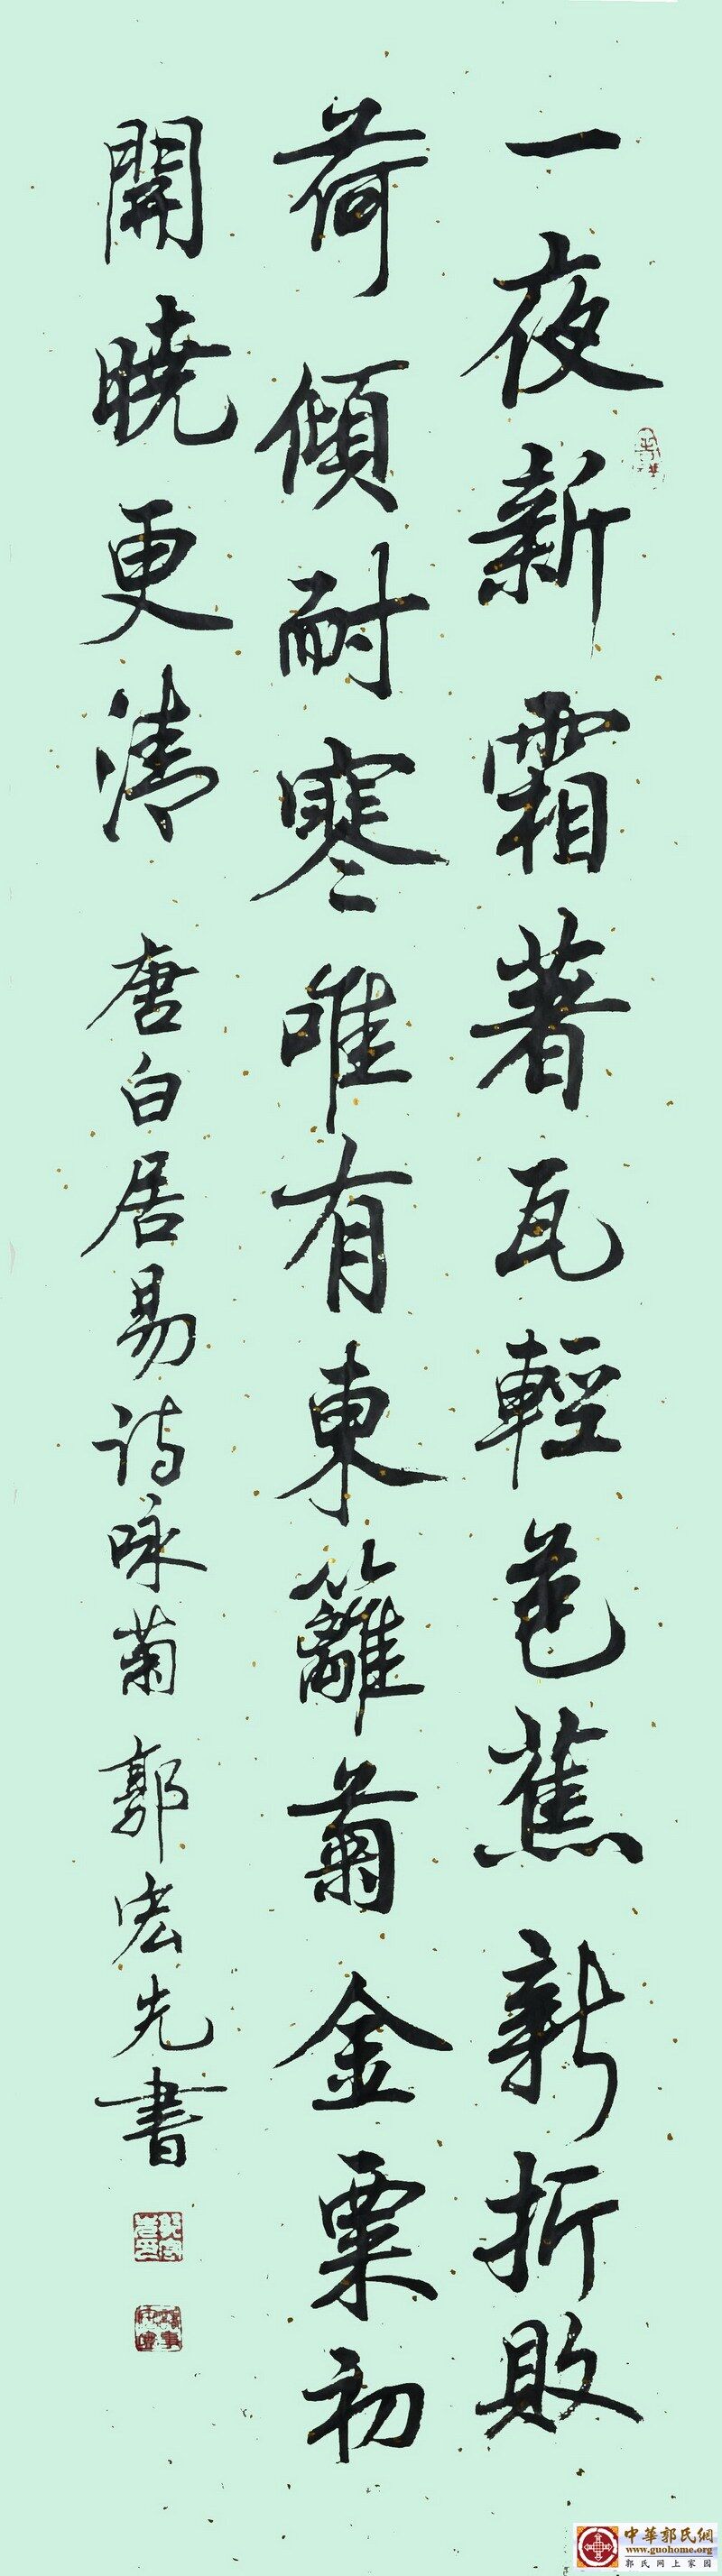 一夜新霜著瓦輕芭蕉新折敗
荷傾耐寒唯有東籬菊金粟初
開曉更清 唐白居易詩咏菊 郭宏先書
中華郭氏網
www.guohome.org
郭氏网上家园